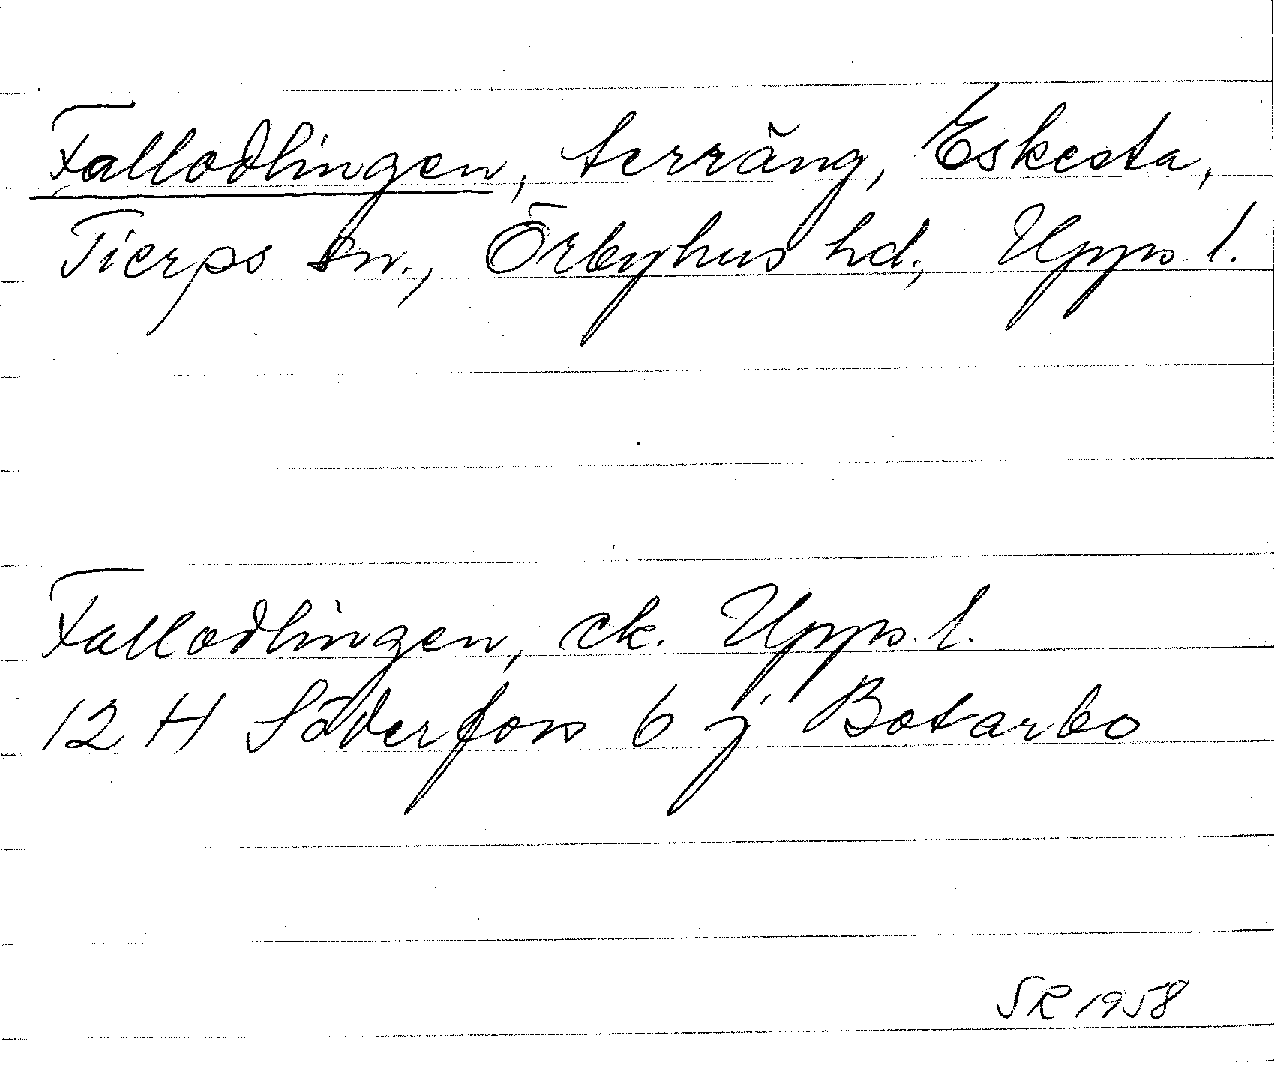 Fallodlingen, terräng, Eskesta,
Tierps sn., Örbyhus hd., Upps. l.
Fallodlingen, ek. Upps. l.
12 H Söderfors 6 j Botarbo
SR 1958